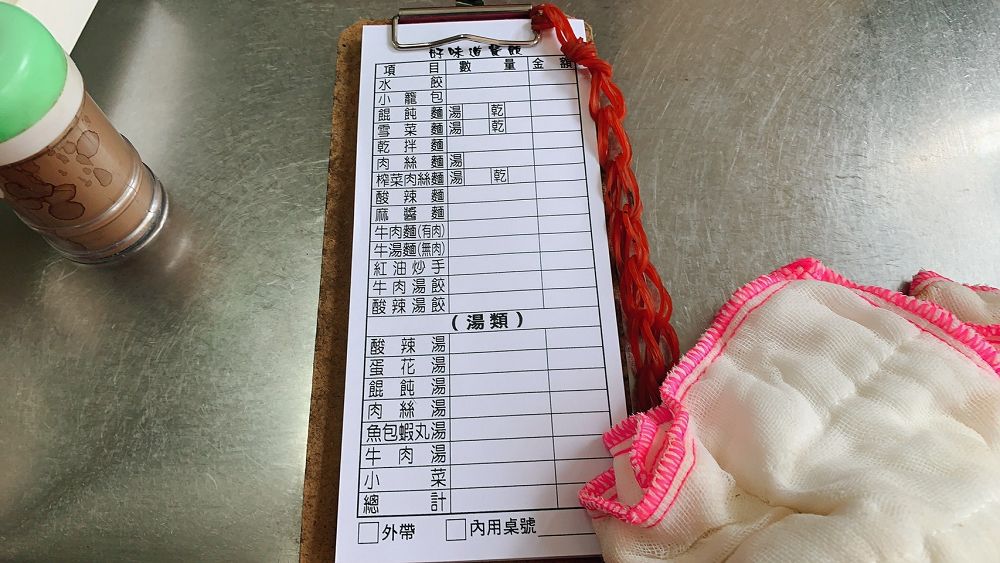 好味道餐飲
項目 數量 金額
水餃
小籠包
餛飩麵 湯 乾
雪菜麵 湯 乾
乾拌麵
肉絲麵 湯
榨菜肉絲麵 湯 乾
酸辣麵
麻醬麵
牛肉麵(有肉)
牛湯麵(無肉)
紅油炒手
牛肉湯餃
酸辣湯餃
(湯類)
酸辣湯
蛋花湯
餛飩湯
肉絲湯
魚包蝦丸湯
牛肉湯
小菜
總計
外帶 內用桌號